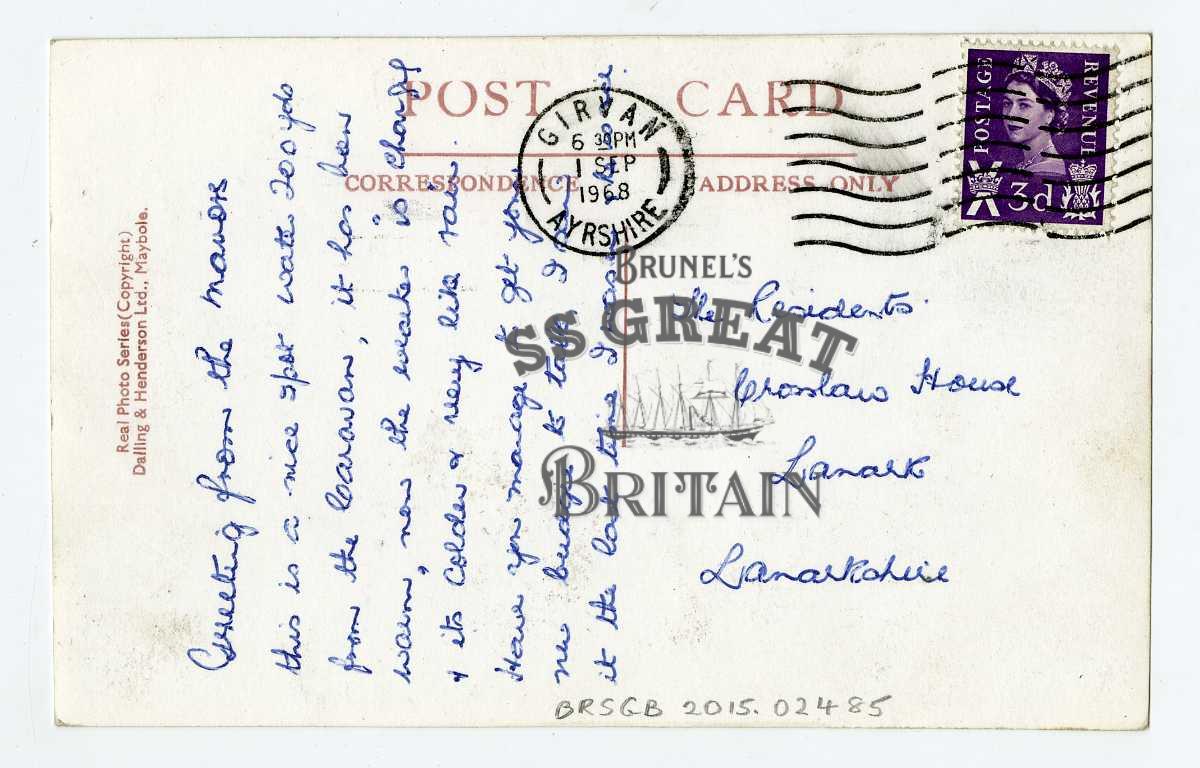 POST CARD
CORRESPONDENCE ADDRESS ONLY
GIRVAN
6 30PM
1 SEP
1968
AYRSHIRE
POSTAGE REVENUE
3d
Real Photo Series (Copyright)
Dalling & Henderson Ltd., Maybole.
Greeting from the manors
this is a nice spot wate 200 yds
from the Caravan, it has been
warm, now the
& its Colder & very like rain.
Have you manage to get your
new budgie to talk, I
it the last time I was
The Residents.
Crosslaw House
Lanark
Lanarkshire
BRUNEL'S
SS GREAT
BRITAIN
BRSGB 2015.02485